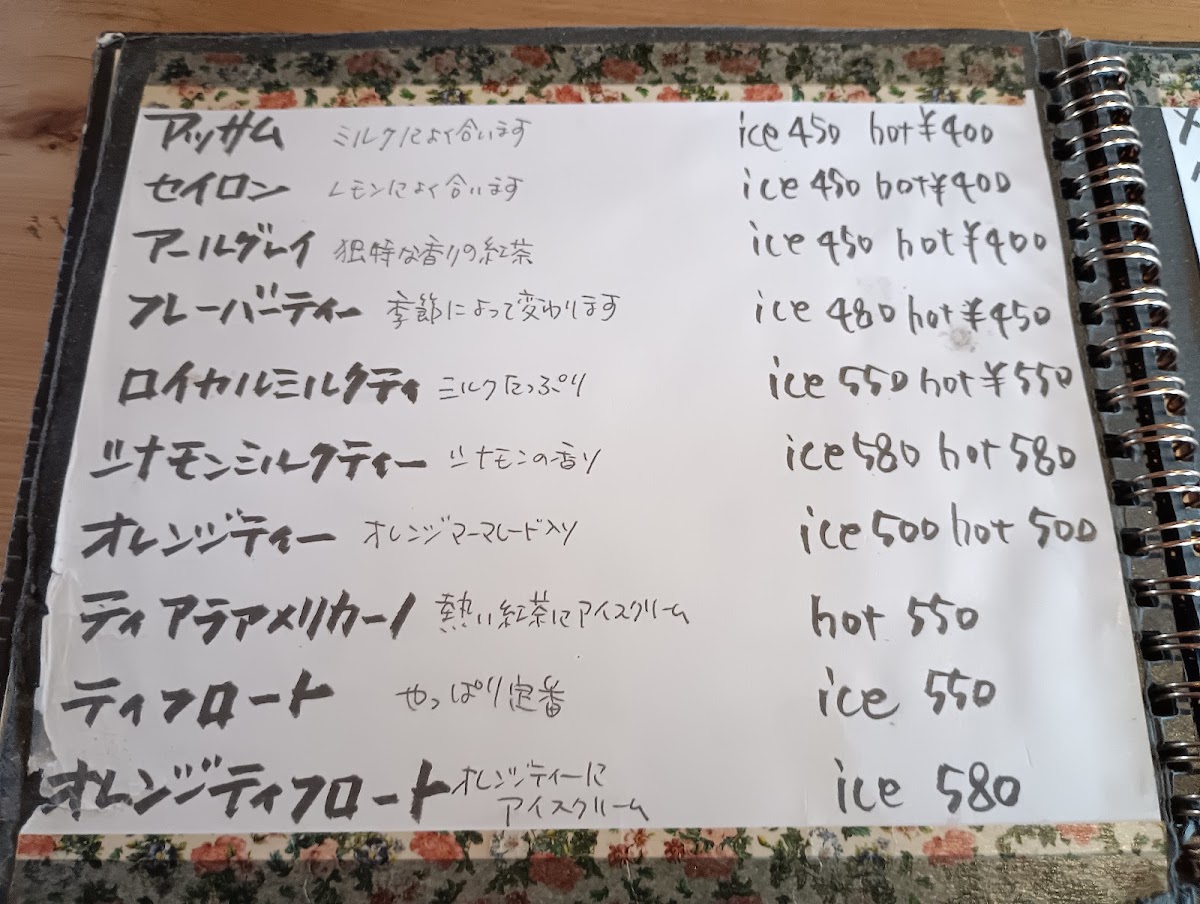 アッサム ミルクによく合います ice 450 hot ¥400
セイロン レモンによく合います ice 450 hot ¥400
アールグレイ 独特な香りの紅茶 ice 450 hot ¥400
フレーバーティー 季節によって変わります ice 480 hot ¥450
ロイヤルミルクティ ミルクたっぷり ice 550 hot ¥550
シナモンミルクティー シナモンの香り ice 580 hot 580
オレンジティー オレンジマーマレード入り ice 500 hot 500
ティアラアメリカーノ 熱い紅茶にアイスクリーム hot 550
ティフロート やっぱり定番 ice 550
オレンジティフロート オレンジティーに ice 580
アイスクリーム